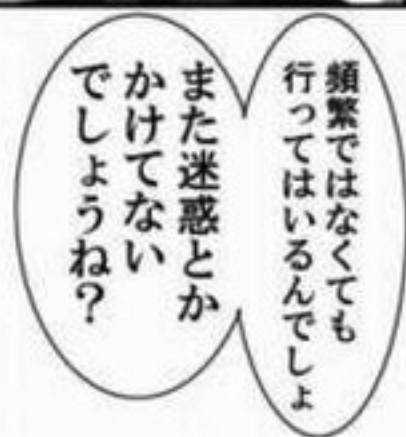 頻繁ではなくても
行ってはいるんでしょ
また迷惑とか
かけてない
でしょうね？